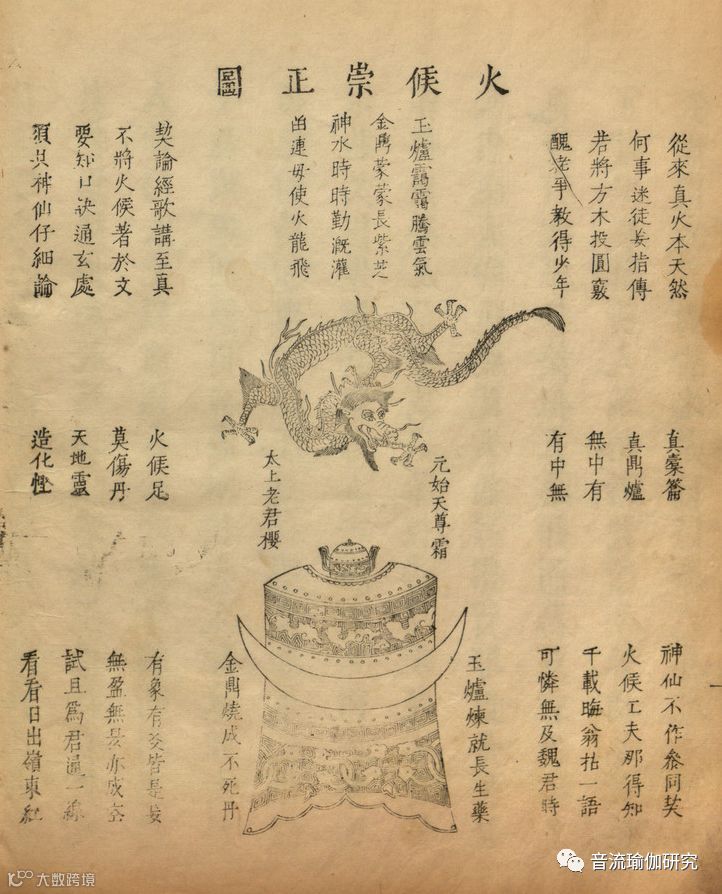 火候崇正圖
從來真火本天然
何事迷徒妄指傳
若將方木投圓竅
醜老爭教得少年
玉爐靄靄騰雲氣
金鼎蒙蒙長紫芝
神水時時勤溉灌
留連毋使火龍飛
契論經歌講至真
不將火候著於文
要知口訣通玄處
須共神仙仔細論
真橐籥
真鼎爐
無中有
有中無
元始天尊霜
太上老君櫻
火候足
莫傷丹
天地靈
造化慳
神仙不作參同契
火候工夫那得知
千載晦翁拈一語
可憐無及魏君時
玉爐煉就長生藥
金鼎燒成不死丹
有象有爻皆是妄
無盈無昃亦成空
試且爲君通一線
看看日出嶺東紅
音流瑜伽研究
大数跨境